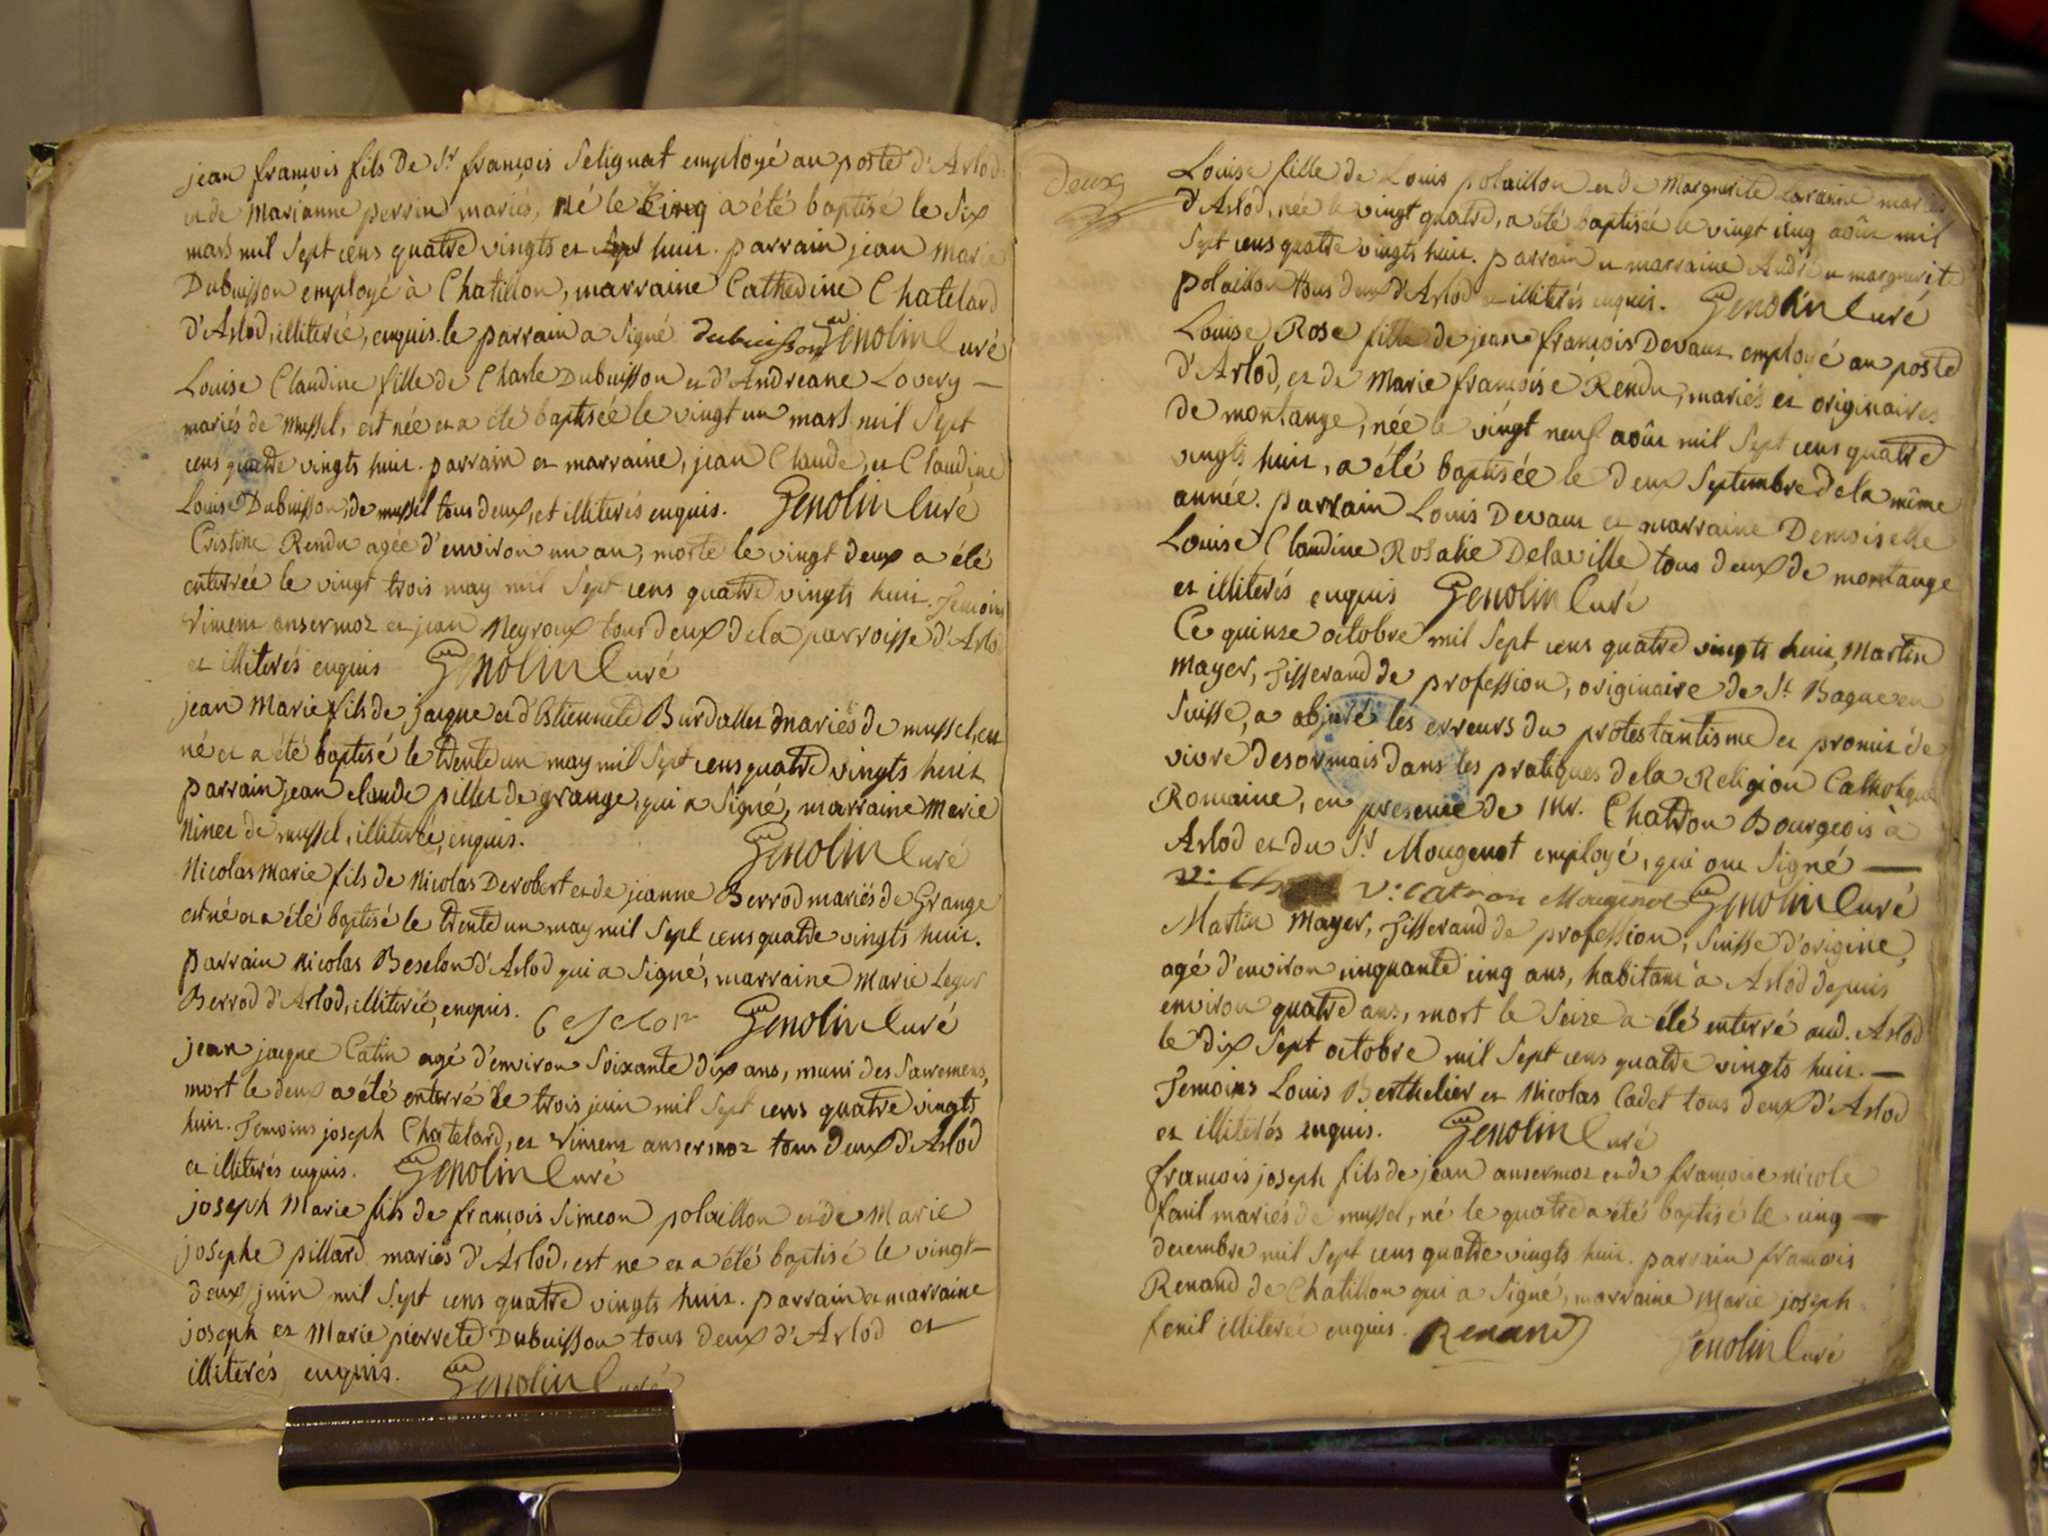 jean françois fils De Sr françois Selignat employé au poste d'Arlod
et de Marianne perrin mariés, Né le Cinq a été baptisé le Six
mars mil Sept cens quatre vingts et huit. parrain jean Marie
Dubuisson employé à Chatillon, marraine Catherine Chatelard
d'Arlod, illiterée, enquis. le parrain a Signé dubuisson Genolin Curé
Louise Claudine fille de Charle Dubuisson et d'Andreane Lovery —
mariés de Mussel, est née et a été baptisée le vingt un mars mil Sept
cens quatre vingts huit. parrain et marraine, jean Claude, et Claudine
Louise Dubuisson, de mussel tous deux, et illiterés enquis. Genolin Curé
Cristine Rendu agée d'environ un an, morte le vingt deux a été
enterrée le vingt trois may mil Sept cens quatre vingts huit. Temoins
Vincent ansermoz et jean Neyroux tous deux de la parroisse d'Arlo
et illiterés enquis Genolin Curé
jean Marie fils de jacque et d'Etiennete Burdallet mariés de mussel, est
né et a été baptisé le trente un may mil Sept cens quatre vingts huit
parrain jean claude pillet de grange, qui a Signé, marraine Marie
Ninet de mussel, illiterée, enquis. Genolin Curé
Nicolas Marie fils de Nicolas Derobert et de jeanne Berrod mariés de Grange
est né et a été baptisé le trente un may mil Sept cens quatre vingts huit.
parrain Nicolas Beselon d'Arlod qui a Signé, marraine Marie Leger
Berrod d'Arlod, illiterée, enquis. Genolin Curé
jean jacque Catin agé d'environ Soixante dix ans, muni des Sacremens,
mort le deux a été enterré le trois juin mil Sept cens quatre vingts
huit. Temoins joseph Chatelard, et Vincent ansermoz tous deux d'Arlod
et illiterés enquis. Genolin Curé
joseph Marie fils de françois Simeon polaillon et de Marie
josephe pillard mariés d'Arlod, est né et a été baptisé le vingt-
deux juin mil Sept cens quatre vingts huit. parrain et marraine
joseph et Marie pierrete Dubuisson tous deux d'Arlod et
illiterés enquis. Genolin Curé
deux
Louise fille de Louis polaillon et de Marguerite Laraine mariés
d'Arlod, née le vingt quatre, a été baptisée le vingt cinq août mil
Sept cens quatre vingts huit. parrain et marraine André et marguerite
polaillon tous deux d'Arlod et illiterés enquis. Genolin Curé
Louise Rose fille de jean françois Devaux employé au poste
d'Arlod, et de Marie françoise Rendu, mariés et originaires
de montange, née le vingt neuf août mil Sept cens quatre
vingts huit, a été baptisée le deux Septembre de la même
année. parrain Louis Devaux et marraine Demoiselle
Louise Claudine Rosalie Delaville tous deux de montange
et illiterés enquis Genolin Curé
Ce quinze octobre mil Sept cens quatre vingts huit, Martin
Mayer, Tisserand de profession, originaire de St Bague en
Suisse, a abjuré les erreurs du protestantisme et promis de
vivre desormais dans les pratiques de la Religion Catholique
Romaine, en presence de Mr. Chatron Bourgeois à
Arlod et du Sr Mougenot employé, qui ont Signé —
v: catron Mougenot Genolin Curé
Martin Mayer, Tisserand de profession, Suisse d'origine,
agé d'environ cinquante cinq ans, habitant à Arlod depuis
environ quatre ans, mort le Seize a été enterré aud. Arlod
le dix Sept octobre mil Sept cens quatre vingts huit. —
Temoins Louis Berthelier et Nicolas Cadet tous deux d'Arlod
et illiterés enquis. Genolin Curé
françois joseph fils de jean ansermoz et de françoise nicole
fenil mariés de mussel, né le quatre a été baptisé le cinq —
decembre mil Sept cens quatre vingts huit. parrain françois
Renand de Chatillon qui a Signé, marraine Marie joseph
fenil illiterée enquis. Renand Genolin Curé